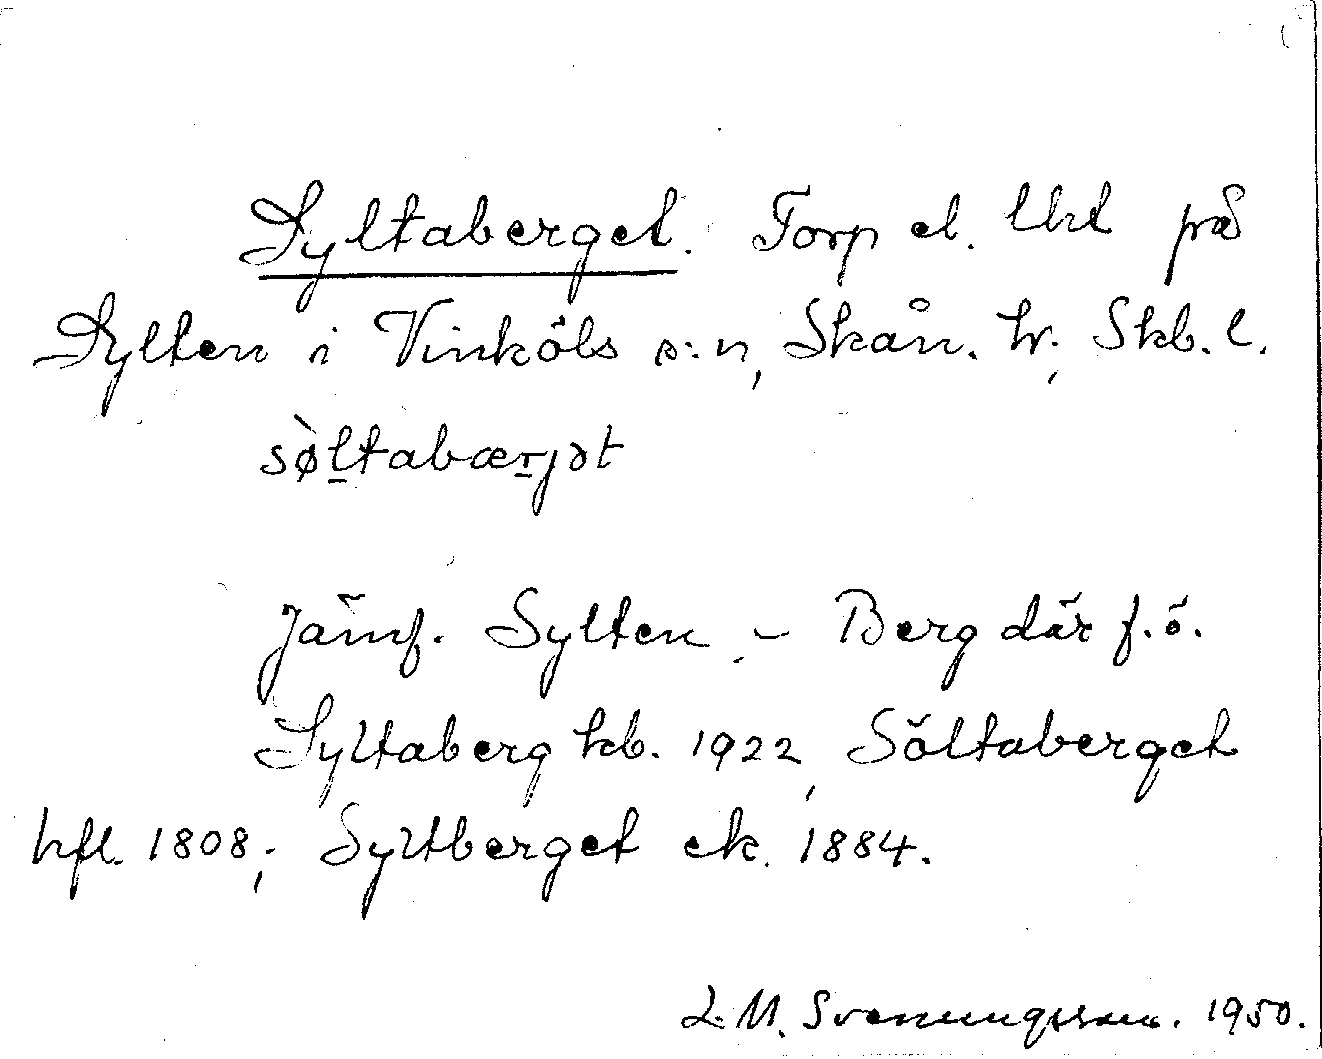 Syltaberget. Torp el. lht på
Sylten i Vinköls s:n, Skån. hr, Skb. l.
sø̀ltabærjət
Jämf. Sylten. – Berg där f.ö.
Syltaberg kb. 1922, Söltaberget
hfl. 1808; Syltberget ek. 1884.
L. M. Svenungsson. 1950.